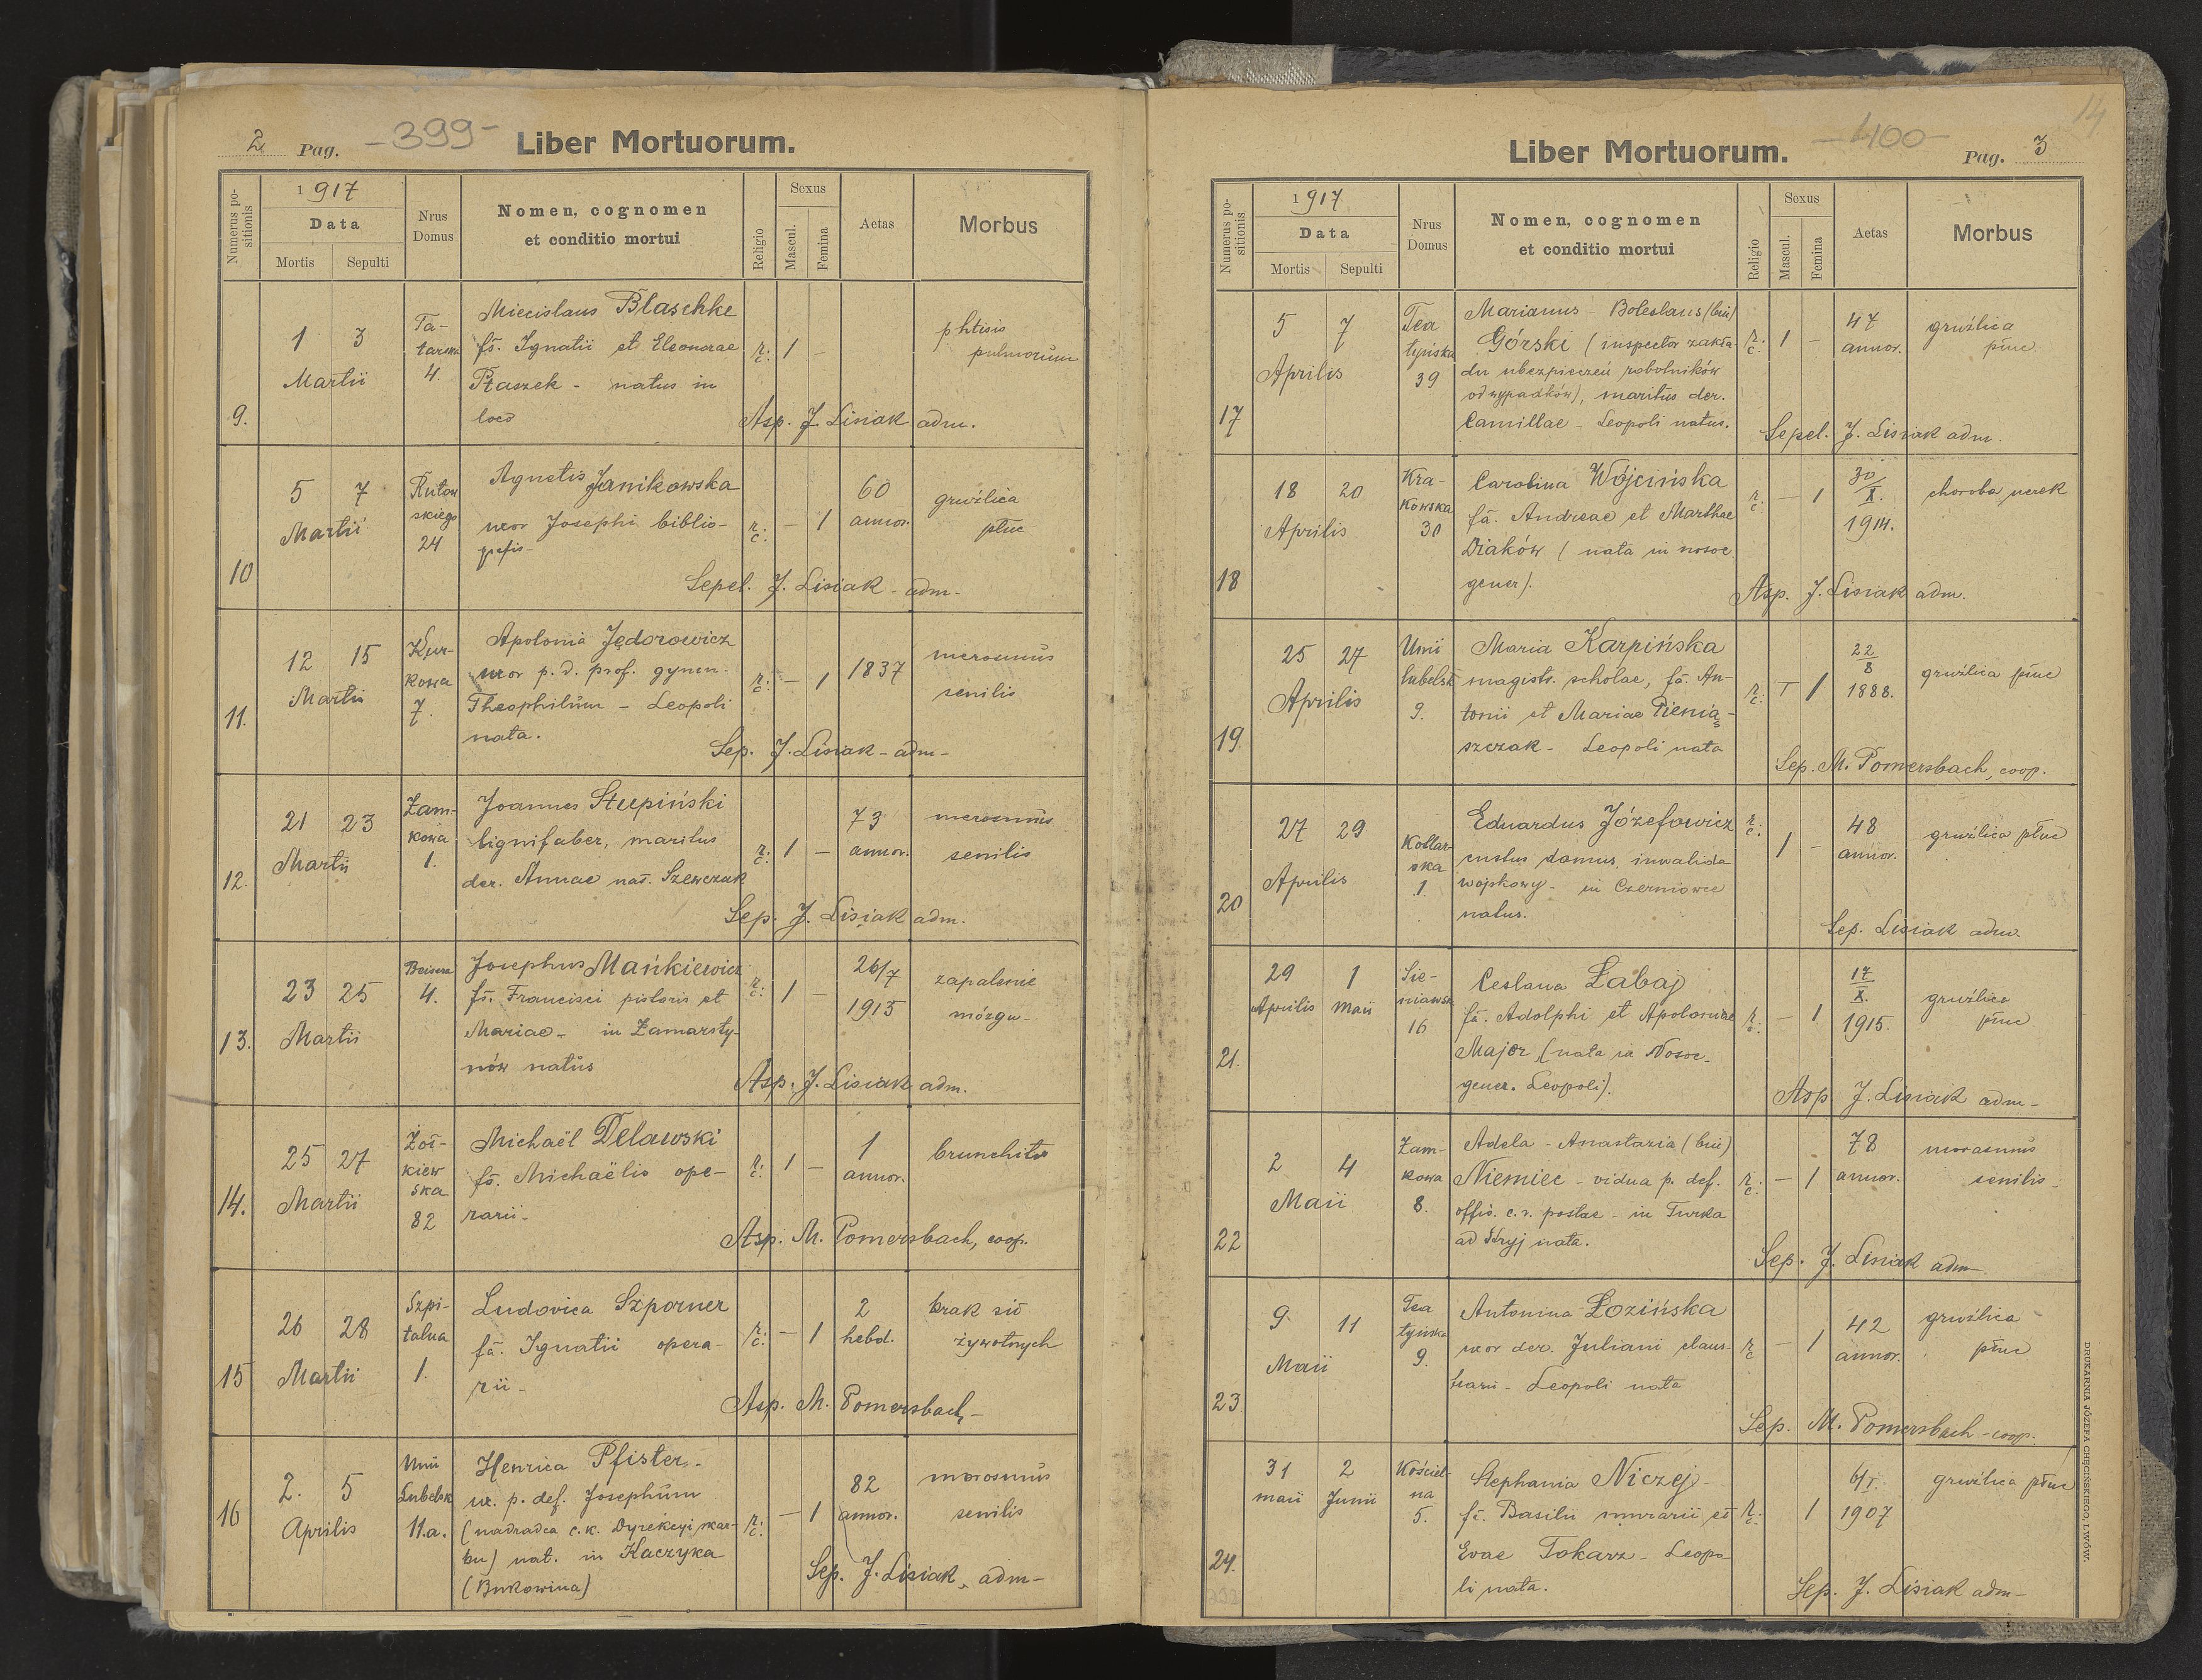 2. Pag. -399- Liber Mortuorum.
Numerus positionis
1917
Data
Mortis Sepulti
Nrus Domus
Nomen, cognomen
et conditio mortui
Religio
Sexus
Mascul. Femina
Aetas
Morbus
1 3 Ta- Miecislaus Blaschke phtisis
tarska fs. Ignatii et Eleonorae r. c. 1 - pulmorum
Martii 4. Ptaszek - natus in
9. loco Asp. J. Lisiak adm.
5 7 Rutow Agnetis Janikowska 60 gruźlica
skiego uxor Josephi biblio- r. c. - 1 annor. płuc
Martii 24
10 Sepel. J. Lisiak - adm-
12 15 Kur- Apolonia Jędorowicz
kowa uxor p. d. prof. gymn. r. c. - 1 1837 senilis
Martii 7. Theophilum - Leopoli
11. nata. Sep. J. Lisiak - adm-
21 23 Zam- Joannes Stupiński 73
kowa lignifaber, maritus r. c. 1 - annor. senilis
Martii 1. der. Annae nat. Szewczak
12. Sep. J. Lisiak adm.
Josephus Mańkiewicz 26/7 zapalenie
23 25 4. fs. Francisci pistoris et r. c. 1 - 1915 mózgu-
Martii Mariae - in Zamarsty-
13. nów natus Asp. J. Lisiak adm.
25 27 Żoł- Michaël Delawski 1
kiew fs. Michaëlis ope- r. c. 1 - annor.
Martii ska rarii-
14. 82 Asp. M. Pomersbach, coop.
26 28 Szpi- Ludovica Szporner 2 brak sił
talna fa. Ignatii opera- r. c. - 1 hebd. żywotnych
Martii 1. rii-
15 Asp. M. Pomersbach-
2. 5 Unii Henrica Pfister- 82
Lubelsk ux. p. def. Josephum - 1 annor. senilis
Aprilis 11.a. (nadradca c.k. Dyrekcyi skar- r. c.
16 bu) nat. in Kaczyka
(Bukowina) Sep. J. Lisiak, adm-
Liber Mortuorum. -400- Pag. 3
14
Numerus positionis
1917
Data
Mortis Sepulti
Nrus Domus
Nomen, cognomen
et conditio mortui
Religio
Sexus
Mascul. Femina
Aetas
Morbus
5 7 Tea Marianus - Boleslaus (bin) 47 gruźlica
tyńska Górski (inspector zakła- r. c. 1 - annor. płuc
Aprilis 39 du ubezpieczeń robotników
od wypadków), maritus der.
17 Camillae - Leopoli natus. Sepel. J. Lisiak adm.
18 20 Kra- Carolina Wójcińska 30/X. choroba nerek
kowska fa. Andreae et Marthae r. c. - 1 1914.
Aprilis 30 Diaków (nata in nosoc.
18 gener). Asp. J. Lisiak adm.
25 27 Unii Maria Karpińska 22/8
lubelsk magistr. scholae, fa. An- r. c. 1 1888. gruźlica płuc
Aprilis 9. tonii et Mariae Pienią-
19 szczak - Leopoli nata
Sep. M. Pomersbach, coop.
27 29 Kotlar- Eduardus Józefowicz r. c. 48 gruźlica płuc
ska custus domus, inwalida 1 - annor.
Aprilis 1. wojskowy - in Czerniowce
20 natus. Sep. Lisiak adm.
29 1 Sie- Ceslawa Łabaj 17/X. gruźlica
Aprilis Maii niawsk fa. Adolphi et Apoloniae r. c. - 1 1915. płuc
16 Major, (nata in Nosoc.
21. gener. Leopoli). Asp J. Lisiak adm-
2 4 Zam- Adela - Anastazia (bin) 78 marasmus
kowa Niemiec - vidua p. def. r. c. - 1 annor. senilis
Maii 8. offic. c. r. postae - in Turka
22 ad Stryj nata. Sep. J. Lisiak adm
9 11 Tea Antonina Łozińska 42 gruźlica
tyńska uxor der. Juliani claus- r. c. - 1 annor. płuc
Maii 9. trarii - Leopoli nata
23 Sep. M. Pomersbach - coop.
31 2 Kościel- Stephania Niczej 6/I. gruźlica płuc
maii Junii na fa. Basilii murarii et r. c. 1 1907
5. Evae Tokarz - Leopo-
24. li nata. Sep. J. Lisiak adm-
DRUKARNIA JÓZEFA CHĘCIŃSKIEGO, LWÓW.